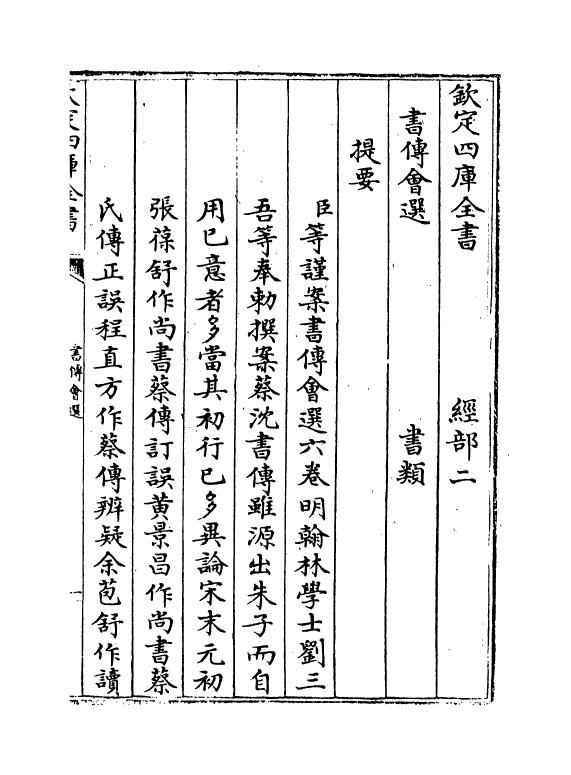 欽定四庫全書　經部二
書傳會選　書類
提要
臣等謹案書傳會選六卷明翰林學士劉三
吾等奉勅撰案蔡沈書傳雖源出朱子而自
用已意者多當其初行已多異論宋末元初
張葆舒作尚書蔡傳訂誤黄景昌作尚書蔡
氏傳正誤程直方作蔡傳辨疑余芑舒作讀
欽定四庫全書
書傳會選
一